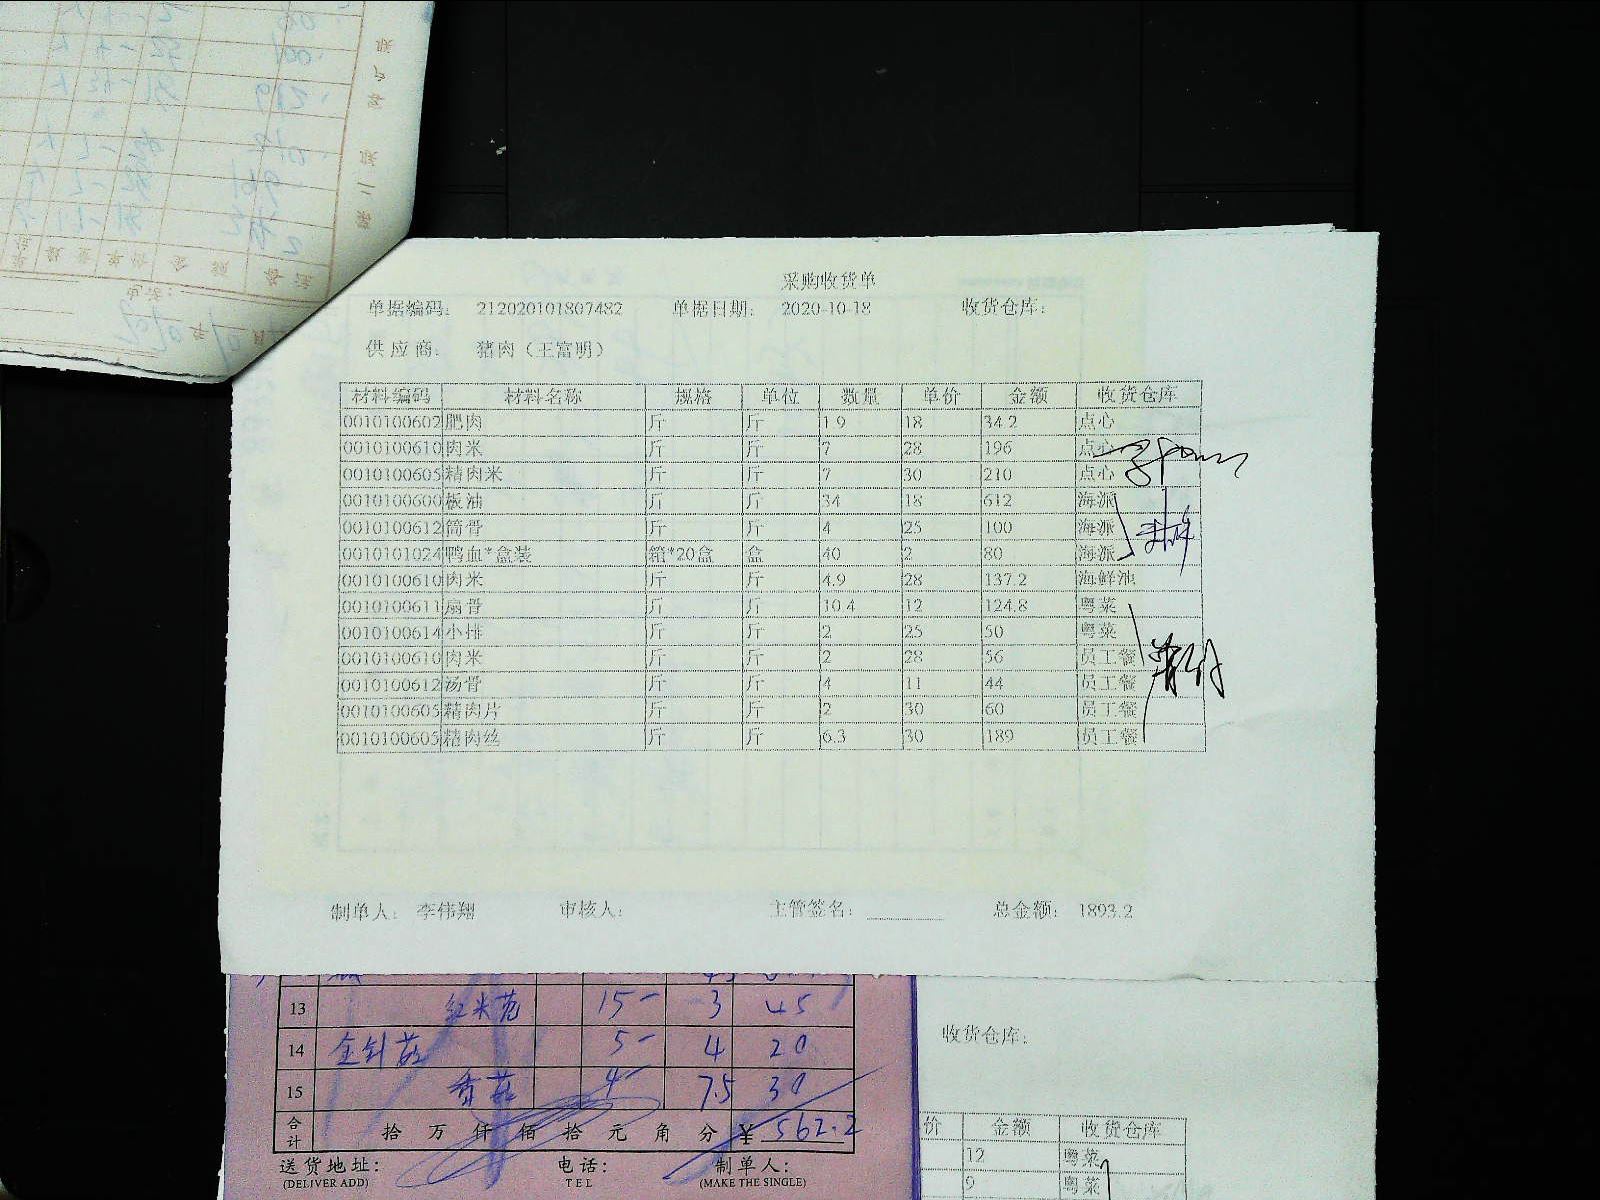 采购收货单
单据编码: 212020101807482 单据日期: 2020-10-18 收货仓库:
供应商: 猪肉（王富明）
材料编码 材料名称 规格 单位 数量 单价 金额 收货仓库
0010100602 肥肉 斤 斤 1.9 18 34.2 点心
0010100610 肉米 斤 斤 7 28 196 点心
0010100605 精肉米 斤 斤 7 30 210 点心
0010100600 板油 斤 斤 34 18 612 海派
0010100612 筒骨 斤 斤 4 25 100 海派
0010101024 鸭血*盒装 箱*20盒 盒 40 2 80 海派
0010100610 肉米 斤 斤 4.9 28 137.2 海鲜池
0010100611 扇骨 斤 斤 10.4 12 124.8 粤菜
0010100614 小排 斤 斤 2 25 50 粤菜
0010100610 肉米 斤 斤 2 28 56 员工餐
0010100612 汤骨 斤 斤 4 11 44 员工餐
0010100605 精肉片 斤 斤 2 30 60 员工餐
0010100605 精肉丝 斤 斤 6.3 30 189 员工餐
制单人: 李伟翔 审核人: 主管签名: 总金额: 1893.2
13 红米苋 15 3 45
14 金针菇 5 4 20
15 香菇 4 7.5 30
合计 拾 万 仟 佰 拾 元 角 分 ¥ 562.2
送货地址: 电话: 制单人:
(DELIVER ADD) TEL (MAKE THE SINGLE)
收货仓库:
价 金额 收货仓库
12 粤菜
9 粤菜